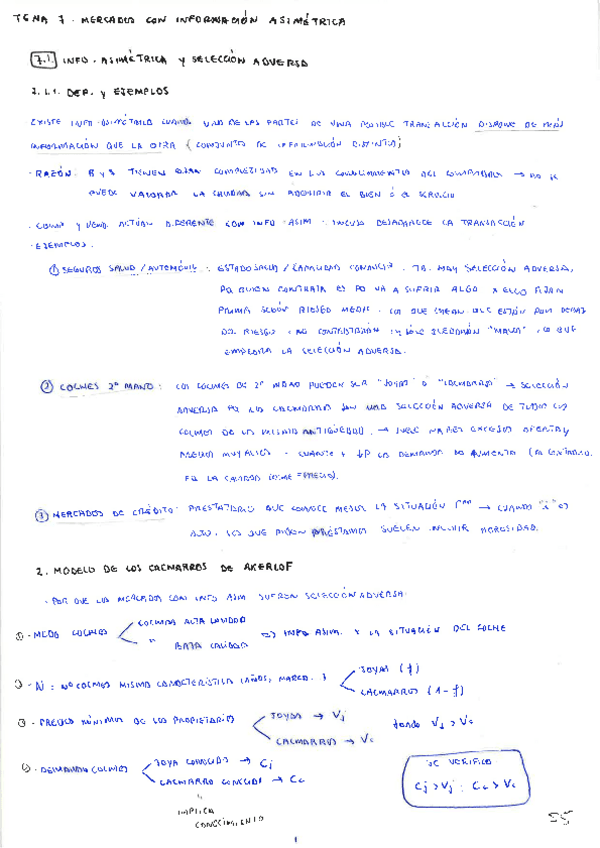 TEMA 7. MERCADOS CON INFORMACIÓN ASIMÉTRICA
7.1. INFO. ASIMÉTRICA Y SELECCIÓN ADVERSA
7.1.1. DEF. Y EJEMPLOS
EXISTE INFO ASIMÉTRICA CUANDO UNA DE LAS PARTES DE UNA POSIBLE TRANSACCIÓN DISPONE DE MÁS
INFORMACIÓN QUE LA OTRA (CONJUNTO DE INFORMACIÓN DISTINTOS)
· RAZÓN: B Y S TIENEN GRAN COMPLEJIDAD EN LOS CONOCIMIENTOS DEL COMPRADOR → NO SE
PUEDE VALORAR LA CALIDAD SIN ADQUIRIR EL BIEN Ó EL SERVICIO
· COMP Y VEND. ACTÚAN DIFERENTE CON INFO ASIM. INCLUSO DESAPARECE LA TRANSACCIÓN
· EJEMPLOS.
① SEGUROS SALUD / AUTOMÓVIL: ESTADO SALUD / CAPACIDAD CONDUCIR. TB. HAY SELECCIÓN ADVERSA,
PQ QUIEN CONTRATA ES PQ VA A SUFRIR ALGO X ELLO FIJAN
PRIMA SEGÚN RIESGO MEDIO. LOS QUE CREAN QUE ESTÁN POR DEBAJO
DEL RIESGO, NO CONTRATARÁN Y SOLO QUEDARÁN "MALOS", LO QUE
EMPEORA LA SELECCIÓN ADVERSA.
② COCHES 2ª MANO: LOS COCHES DE 2ª MANO PUEDEN SER "JOYAS" Ó "CACHARROS" → SELECCIÓN
ADVERSA PQ LOS CACHARROS SON UNA SELECCIÓN ADVERSA DE TODOS LOS
COCHES DE LA MISMA ANTIGÜEDAD. → SUELE HABER EXCESOS OFERTA Y
PRECIOS MUY BAJOS. CUANTO + ↓P LA DEMANDA NO AUMENTA
③ MERCADOS DE CRÉDITO: PRESTATARIO QUE CONOCE MEJOR LA SITUACIÓN → CUANDO "i" ES
ALTO, LOS QUE PIDEN PRÉSTAMOS SUELEN MOROSIDAD.
2. MODELO DE LOS CACHARROS DE AKERLOF
· POR QUE LOS MERCADOS CON INFO ASIM SUFREN SELECCIÓN ADVERSA:
- MCDO COCHES
COCHES ALTA CALIDAD
" BAJA CALIDAD
⇒ INFO ASIM. X LA SITUACIÓN DEL COCHE
- N: Nº COCHES MISMA CARACTERÍSTICA (AÑOS, MARCA..)
JOYAS (f)
CACHARROS (1-f)
- PRECIOS MÍNIMOS DE LOS PROPIETARIOS
JOYAS → Vj
CACHARROS → Vc
Vj > Vc
- DEMANDA COCHES
JOYA CONOCIDO → Cj
CACHARRO CONOCIDO → Cc
SE VERIFICA
Cj > Vj ; Cc > Vc
IMPLICA
CONOCIMIENTO
1